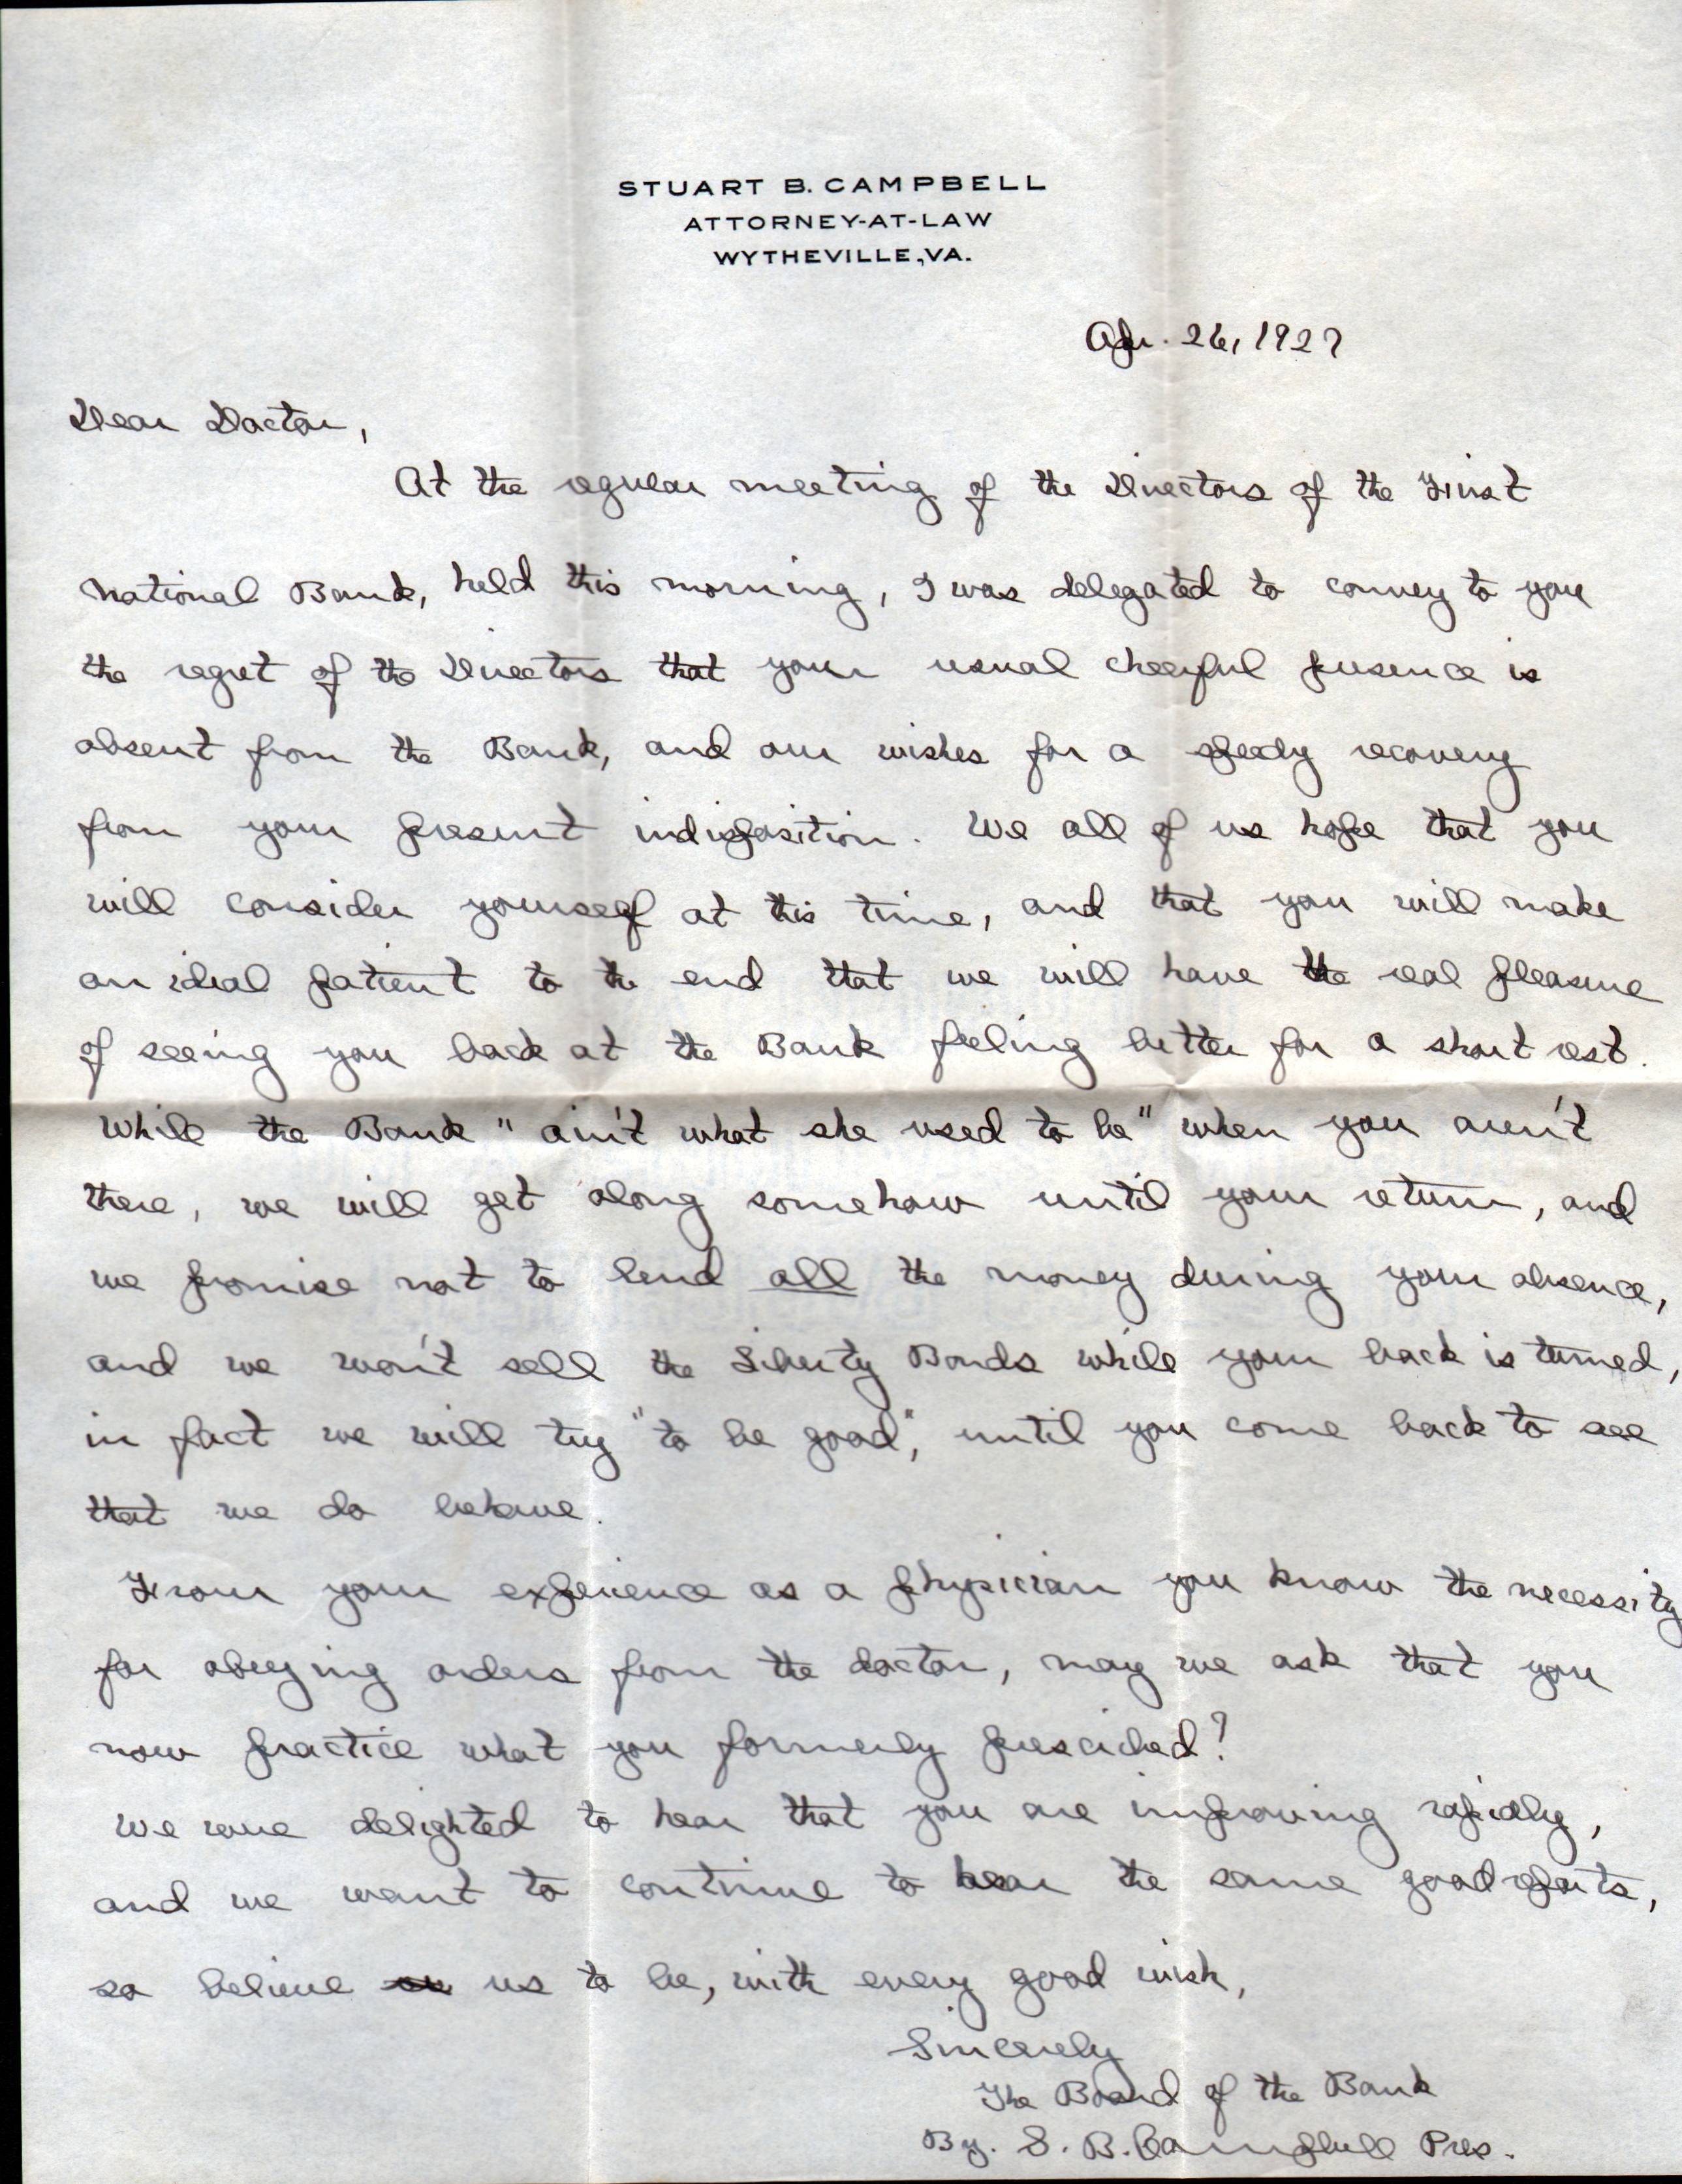 STUART B. CAMPBELL
ATTORNEY-AT-LAW
WYTHEVILLE, VA.
Apr. 26, 1927
Dear Doctor,
At the regular meeting of the Directors of the First
National Bank, held this morning, I was delegated to convey to you
the regret of the Directors that your usual cheerful presence is
absent from the Bank, and our wishes for a speedy recovery
from your present indisposition. We all of us hope that you
will consider yourself at this time, and that you will make
an ideal patient to the end that we will have the real pleasure
of seeing you back at the Bank feeling better for a short rest.
While the Bank "ain't what she used to be" when you aren't
there, we will get along somehow until your return, and
we promise not to lend all the money during your absence,
and we won't sell the Liberty Bonds while your back is turned,
in fact we will try "to be good", until you come back to see
that we do behave.
From your experience as a physician you know the necessity
for obeying orders from the doctor, may we ask that you
now practice what you formerly prescribed?
We were delighted to hear that you are improving rapidly,
and we want to continue to hear the same good reports,
so believe us to be, with every good wish,
Sincerely
The Board of the Bank
By. S. B. Campbell Pres.